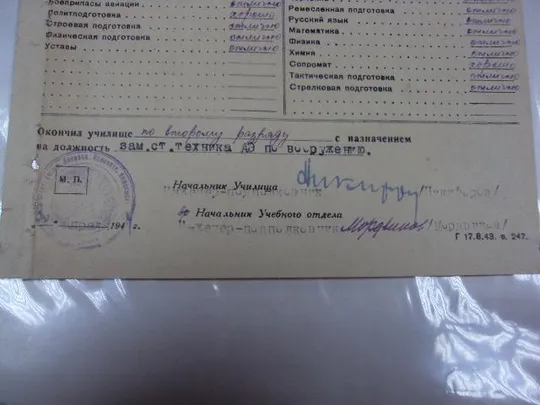 Боеприпасы авиации отлично
Политподготовка хорошо
Строевая подготовка отлично
Физическая подготовка отлично
Уставы отлично
Ремесленная подготовка отлично
Русский язык отлично
Математика отлично
Физика отлично
Химия отлично
Сопромат хорошо
Тактическая подготовка отлично
Стрелковая подготовка отлично
Окончил училище по второму разряду с назначением
на должность зам.ст.техника АЭ по вооружению.
М. П.
Начальник Училища
Инженер-подполковник
Начальник Учебного отдела
Инженер-подполковник Мордвинов /Мордвинов/
194 г.
Г 17.8.43. з. 247.